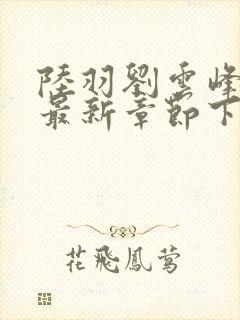 陸羽劉雲峰
最新章節下
花飛鳳鶯